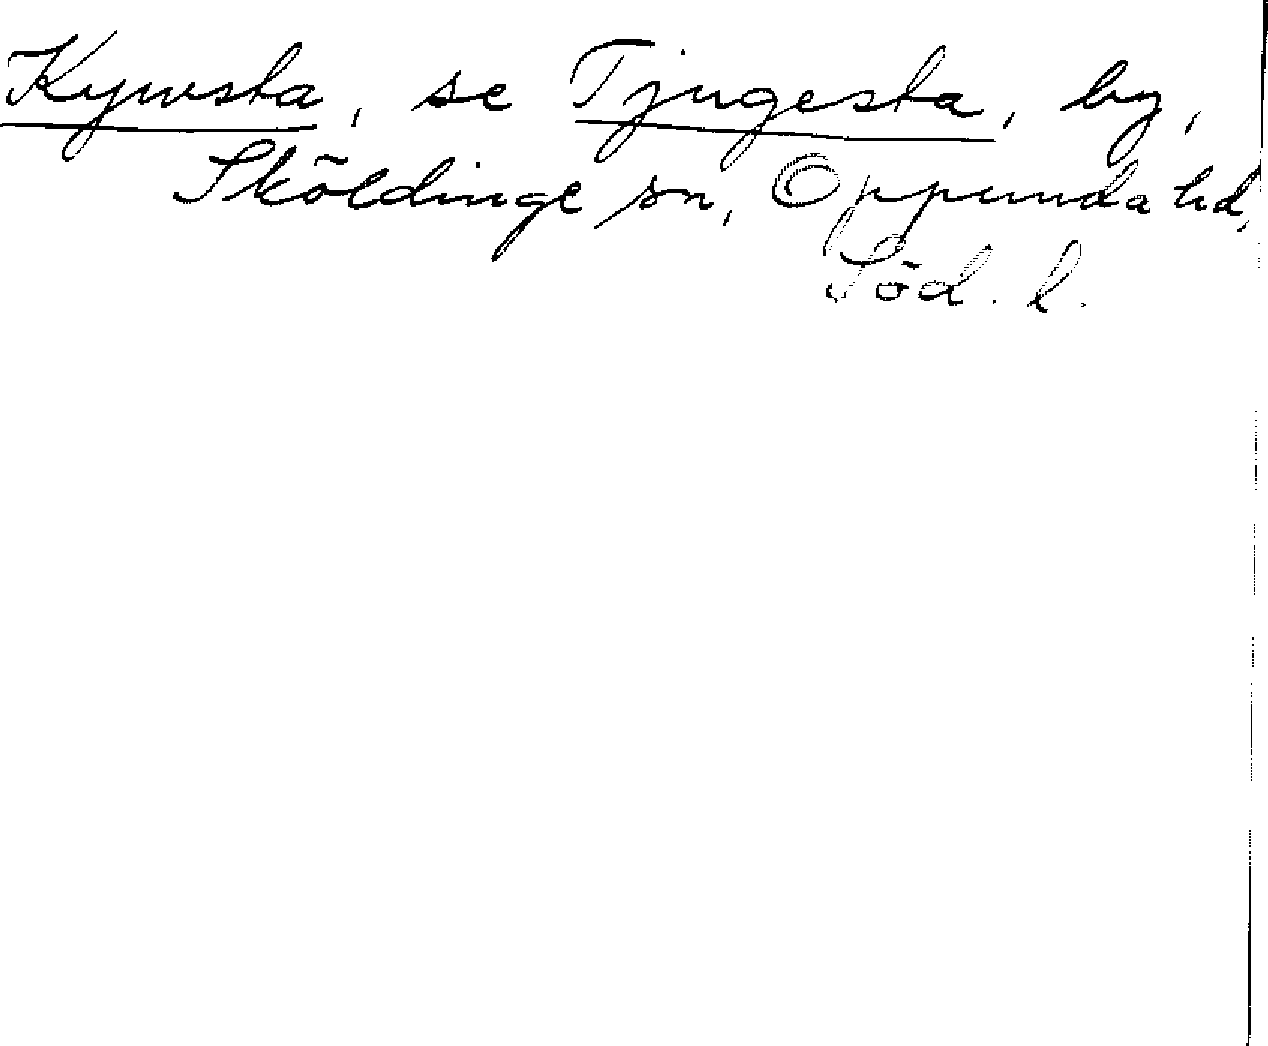 Kywsta, se Tjugesta, by,
Sköldinge sn, Oppunda hd,
Söd. l.